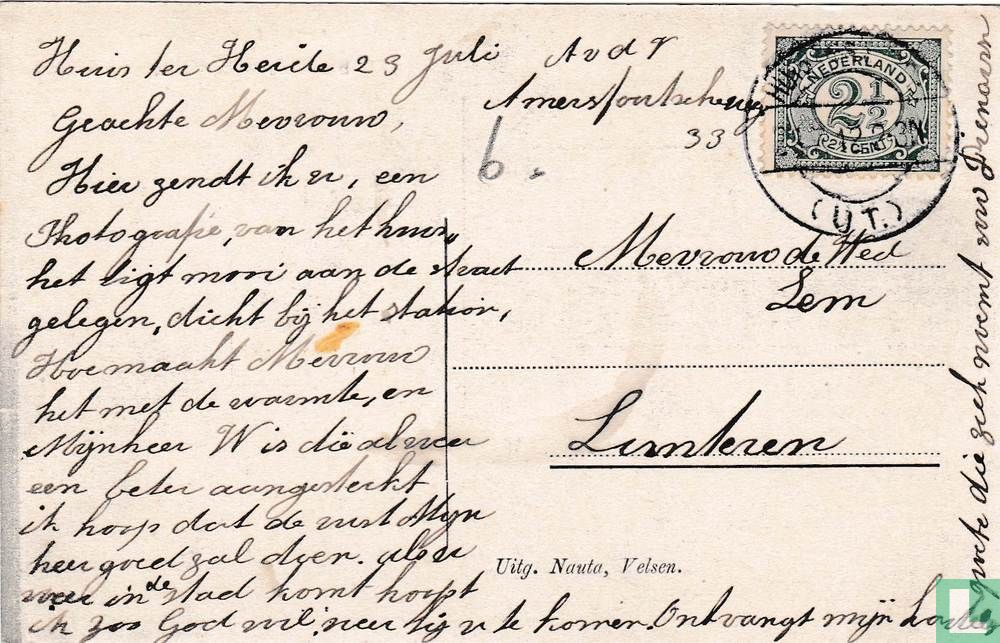 Huis ter Heide 23 Juli
Geachte Mevrouw,
Hier zendt ik u, een
Photografie, van het huis,
het ligt mooi aan de straat
gelegen, dicht bij het station,
Hoe maakt Mevrouw
het met de warmte, en
Mijnheer W is die al weer
een beter aangesterkt
ik hoop dat de rust Mijn
heer goed zal doen. als u
weer in de stad komt hoopt
ik zoo God wil, u te komen. Ontvangt mijn
groete die zich noemt uw Dienares
A v d V
Amersfoortscheweg
33
6.
NEDERLAND
2½
2½ CENT
(UT.)
Mevrouw de Wed
Lem
Lunteren
Uitg. Nauta, Velsen.